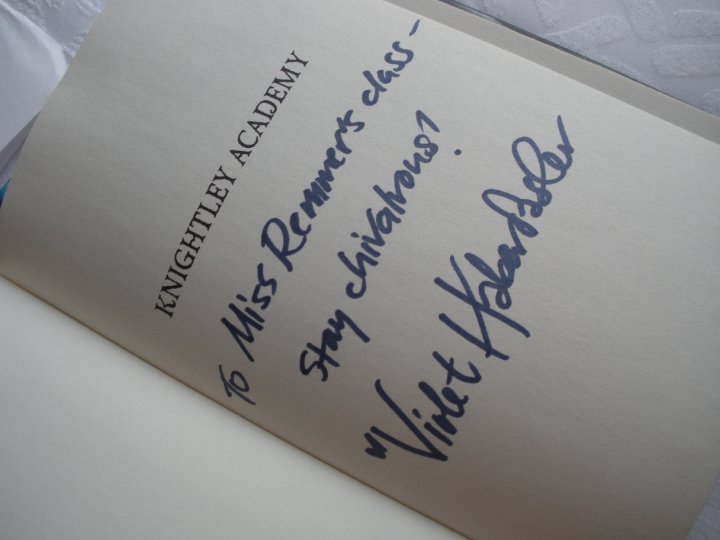 KNIGHTLEY ACADEMY
To Miss Remmers class-
Stay chivalrous!
"Violet Haberdasher